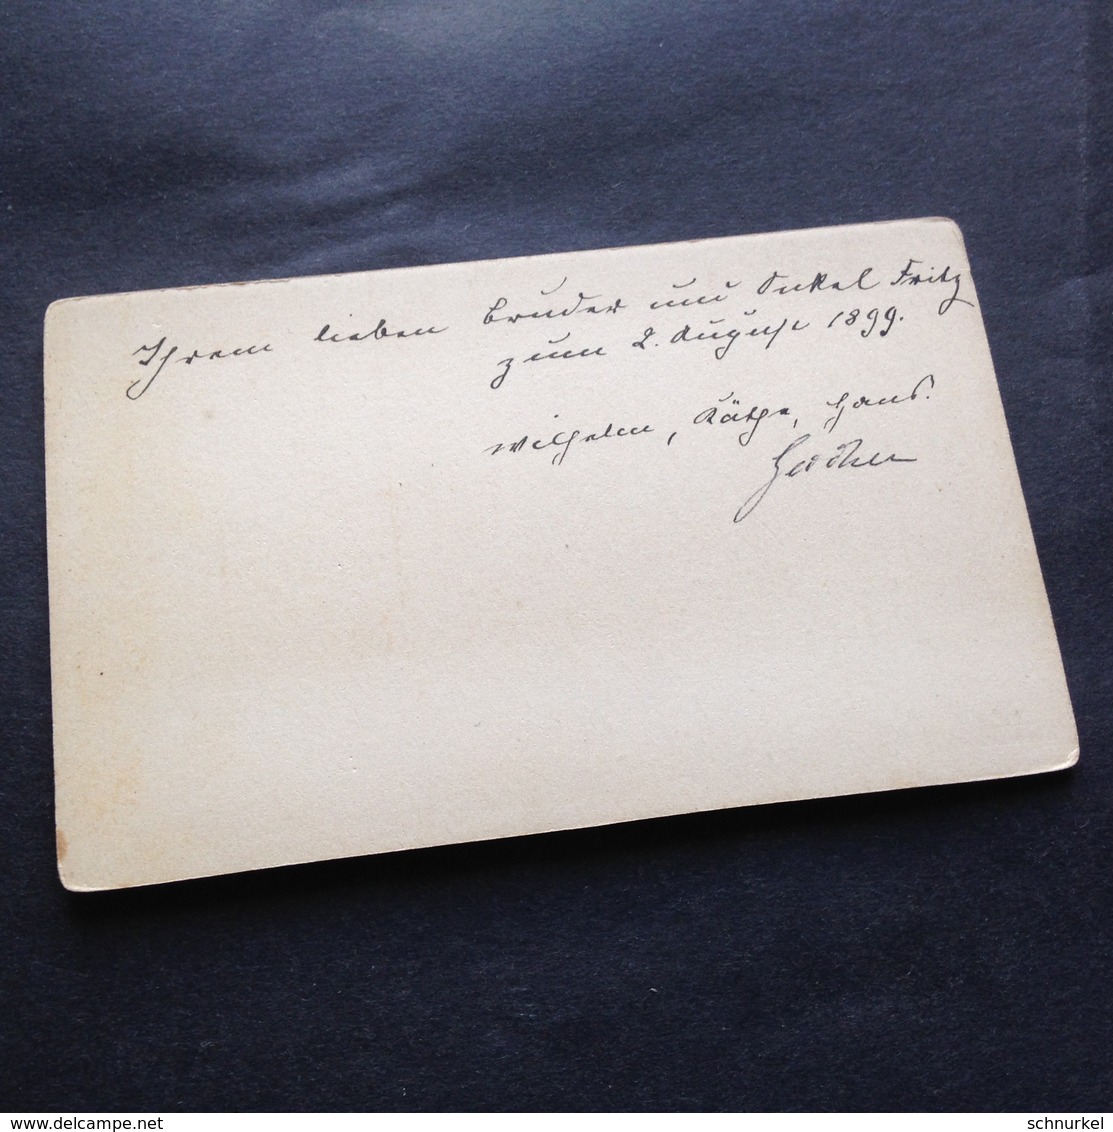 Ihrem lieben Bruder und Onkel Fritz
zum 2. August 1899.
Wilhelm, Käthe, Hans.
delcampe.net
schnurkel